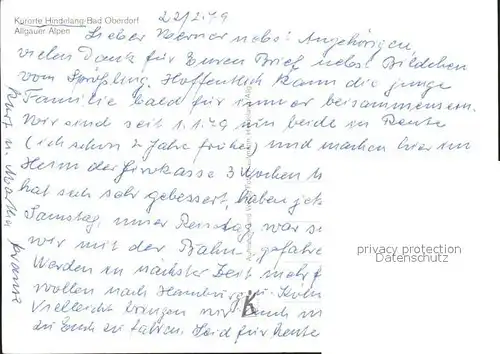 Kurorte Hindelang-Bad Oberdorf
Allgäuer Alpen
22/2.79
Lieber Werner nebst Angehörigen,
vielen Dank für Euren Brief nebst Bildchen
vom Sprößling. Hoffentlich kann die junge
Familie bald für immer beisammensein.
Wir sind seit 1.1.79 nun beide in Rente
(ich schon 2 Jahre früher) und machen hier im
Heim der 3 Wochen
hat sich sehr gebessert, haben jetz
Samstag, unser Reisetag, war s
wir mit der Bahn gefahre
Werden in nächster Zeit mehr f
wollen nach Hamburg u. Köln
Vielleicht bringen wir Euch
zu Euch zu fahren. Seid für heute
Kurt u. Martha
privacy protection
Datenschutz